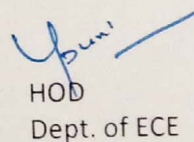 HOD
Dept. of ECE